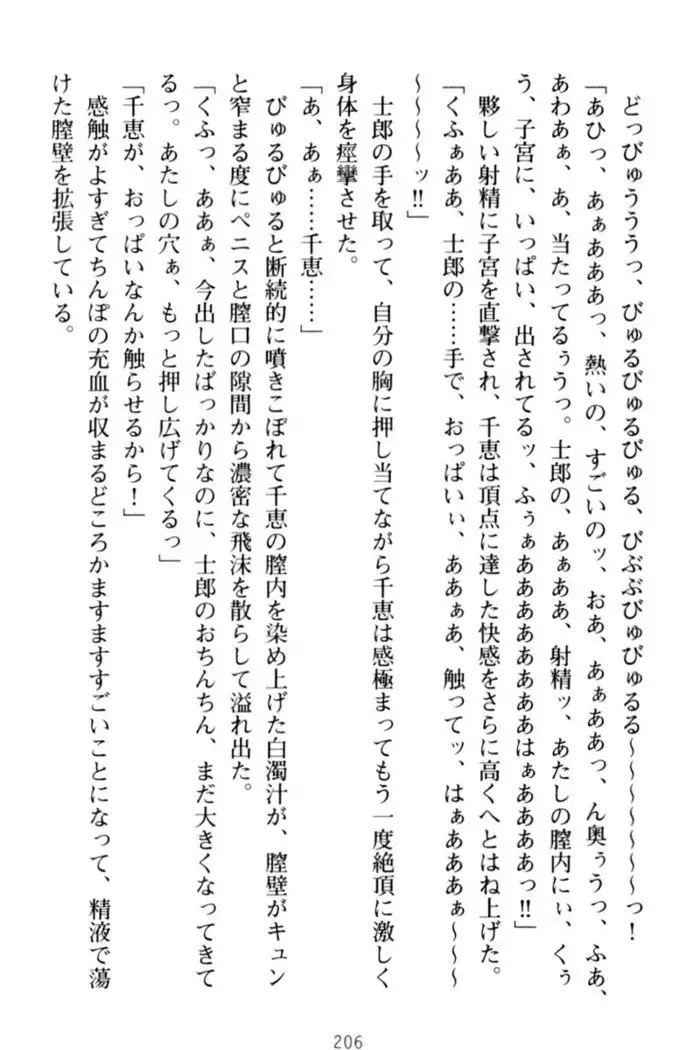 どっびゅうううっ、びゅるびゅるびゅる、びぶぶびゅびゅるる～～～～～～っ！
「あひっ、あぁあああっ、熱いの、すごいのッ、おあ、あぁああっ、ん奥ぅうっ、ふあ、
あわあぁ、あ、当たってるぅうっ。士郎の、あぁああ、射精ッ、あたしの膣内にぃ、くぅ
う、子宮に、いっぱい、出されてるッ、ふぅぁああああああああはぁああああっ‼」
夥しい射精に子宮を直撃され、千恵は頂点に達した快感をさらに高くへとはね上げた。
「くふぁああ、士郎の……手で、おっぱいぃ、ああぁあ、触ってッ、はぁあああぁ～～～
～～～～ッ‼」
士郎の手を取って、自分の胸に押し当てながら千恵は感極まってもう一度絶頂に激しく
身体を痙攣させた。
「あ、あぁ……千恵……」
びゅるびゅると断続的に噴きこぼれて千恵の膣内を染め上げた白濁汁が、膣壁がキュン
と窄まる度にペニスと膣口の隙間から濃密な飛沫を散らして溢れ出た。
「くふっ、ああぁ、今出したばっかりなのに、士郎のおちんちん、まだ大きくなってきて
るっ。あたしの穴ぁ、もっと押し広げてくるっ」
「千恵が、おっぱいなんか触らせるから！」
感触がよすぎてちんぽの充血が収まるどころかますますすごいことになって、精液で蕩
けた膣壁を拡張している。
206